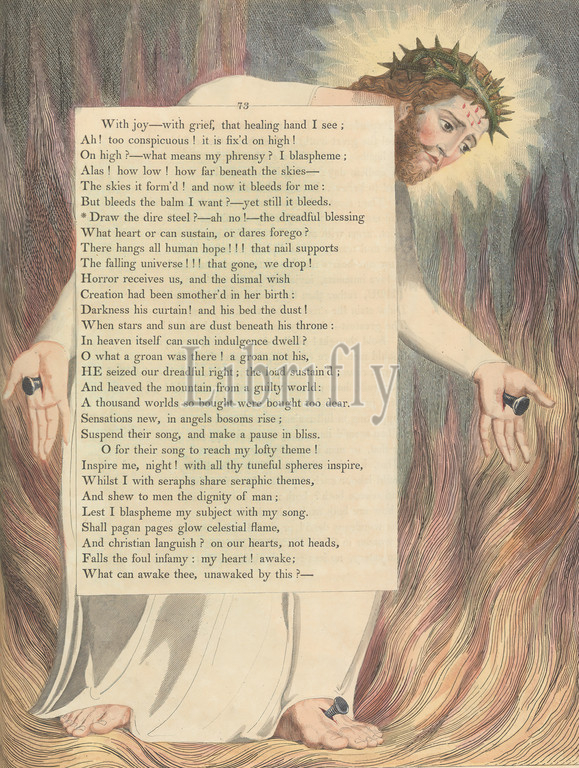 73
With joy—with grief, that healing hand I see ;
Ah! too conspicuous ! it is fix'd on high !
On high ?—what means my phrensy ? I blaspheme ;
Alas ! how low ! how far beneath the skies—
The skies it form'd ! and now it bleeds for me :
But bleeds the balm I want ?—yet still it bleeds.
* Draw the dire steel ?—ah no !—the dreadful blessing
What heart or can sustain, or dares forego ?
There hangs all human hope ! ! ! that nail supports
The falling universe ! ! ! that gone, we drop !
Horror receives us, and the dismal wish
Creation had been smother'd in her birth :
Darkness his curtain ! and his bed the dust !
When stars and sun are dust beneath his throne :
In heaven itself can such indulgence dwell ?
O what a groan was there ! a groan not his,
HE seized our dreadful right ; the load sustain'd ;
And heaved the mountain from a guilty world :
A thousand worlds so bought were bought too dear.
Sensations new, in angels bosoms rise ;
Suspend their song, and make a pause in bliss.
O for their song to reach my lofty theme !
Inspire me, night ! with all thy tuneful spheres inspire,
Whilst I with seraphs share seraphic themes,
And shew to men the dignity of man ;
Lest I blaspheme my subject with my song.
Shall pagan pages glow celestial flame,
And christian languish ? on our hearts, not heads,
Falls the foul infamy : my heart ! awake ;
What can awake thee, unawaked by this ?—
Librifly